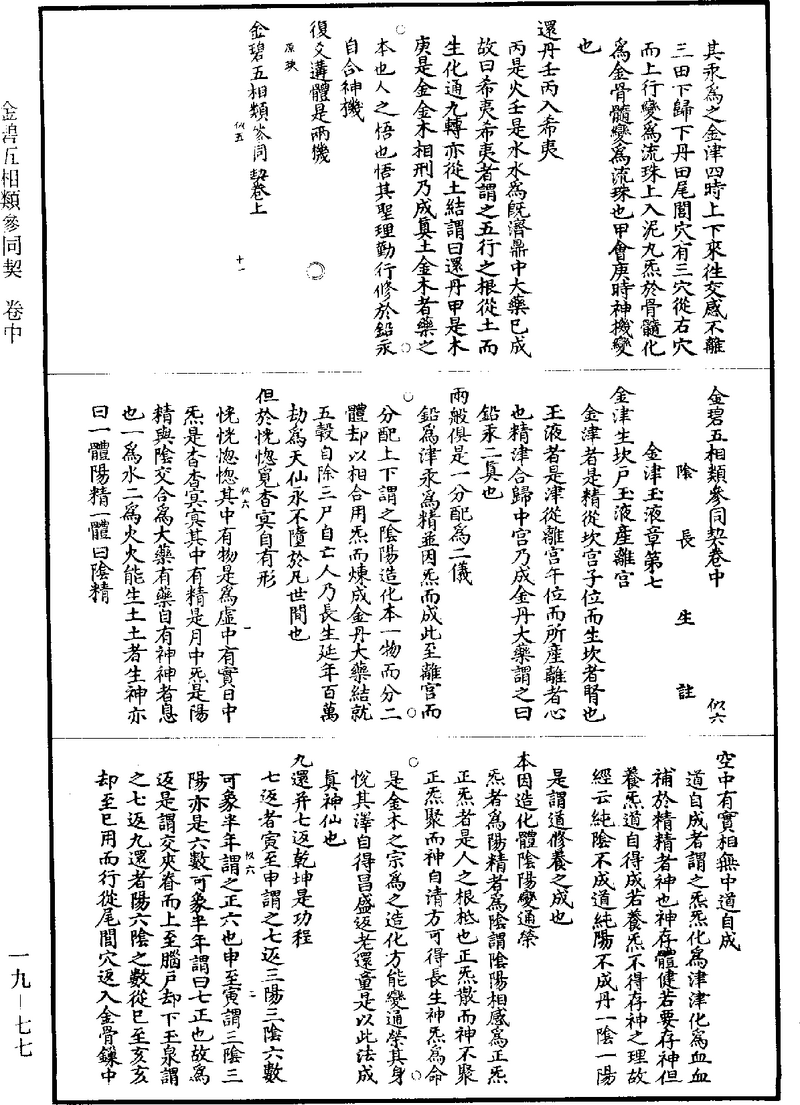 其汞為之金津四時上下來往交感不離
三田下歸下丹田尾閭穴有三穴從右穴
而上行變為流珠上入泥九炁於骨髓化
為金骨髓變為流珠也甲會庚時神機變
也
還丹壬丙入希夷
丙是火壬是水水為既濟鼎中大藥已成
故曰希夷希夷者謂之五行之根從土而
生化通九轉亦從土結謂曰還丹甲是木
庚是金金木相刑乃成真土金木者藥之
本也人之悟也悟其聖理勤行修於鉛汞
自合神機
復爻溝體是兩機
金碧五相類參同契卷上
似五
十一
金碧五相類參同契卷中
似六
陰長生註
金津玉液章第七
金津生坎戶玉液產離宮
金津者是精從坎宮子位而生坎者腎也
玉液者是津從離宮午位而所產離者心
也精津合歸中宮乃成金丹大藥謂之曰
鉛汞二真也
兩般俱是一分配為二儀
鉛為津汞為精並因炁而成此至離宮而
分配上下謂之陰陽造化本一物而分二
體却以相合用炁而煉成金丹大藥結就
五穀自除三尸自亡人乃長生延年百萬
劫為天仙永不墮於凡世間也
但於恍惚覓杳冥自有形
恍恍惚惚其中有物是為虛中有實日中
似六
一
炁是杳杳冥冥其中有精是月中炁是陽
精與陰交合為大藥有藥自有神神者息
也一為水二為火火能生土土者生神亦
曰一體陽精一體曰陰精
空中有實相無中道自成
道自成者謂之炁炁化為津津化為血血
補於精精者神也神存體健若要存神但
養炁道自得成若養炁不得存神之理故
經云純陰不成道純陽不成丹一陰一陽
是謂道修養之成也
本因造化體陰陽變通榮
炁者為陽精者為陰謂陰陽相感為正炁
正炁者是人之根柢也正炁散而神不聚
正炁聚而神自清方可得長生神炁為命
是金木之宗為之造化方能變通榮其身
悅其澤自得昌盛返老還童是以此法成
真神仙也
九還并七返乾坤是功程
七返者寅至申謂之七返三陽三陰六數
似六
二
可象半年謂之正六也申至寅謂三陰三
陽亦是六數可象半年謂曰七正也故為
返是謂交夾脊而上至腦戶却下玉泉謂
之七返九還者陽六陰之數從巳至亥亥
却至巳用而行從尾閭穴返入金骨鏁中
金碧五相類參同契 卷中
一九—七七